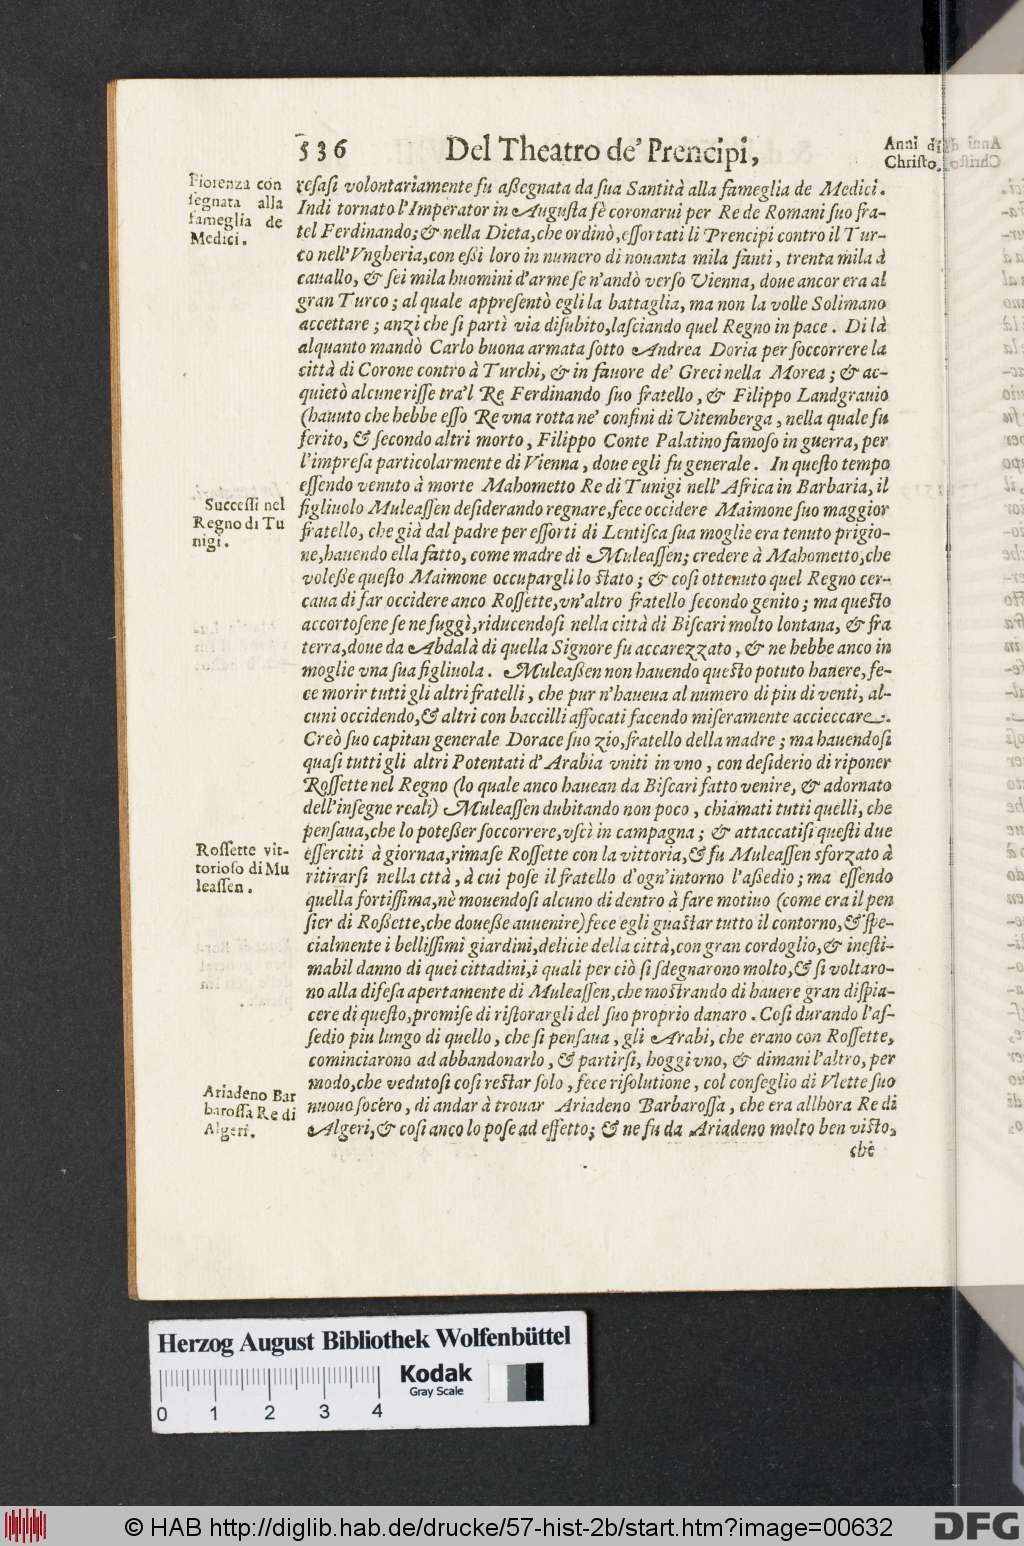 536
Del Theatro de' Prencipi,
Anni di
Christo.
Fiorenza con
segnata alla
fameglia de
Medici.
resasi volontariamente fu aßegnata da sua Santità alla fameglia de Medici.
Indi tornato l'Imperator in Augusta fè coronarui per Re de Romani suo fra-
tel Ferdinando; & nella Dieta, che ordinò, essortati li Prencipi contro il Tur-
co nell'Vngheria, con eßi loro in numero di nouanta mila fanti, trenta mila à
cauallo, & sei mila huomini d'arme se n'andò verso Vienna, doue ancor era al
gran Turco; al quale appresentò egli la battaglia, ma non la volle Solimano
accettare; anzi che si partì via disubito, lasciando quel Regno in pace. Di là
alquanto mandò Carlo buona armata sotto Andrea Doria per soccorrere la
città di Corone contro à Turchi, & in fauore de' Greci nella Morea; & ac-
quietò alcune risse tra'l Re Ferdinando suo fratello, & Filippo Landgrauio
(hauuto che hebbe esso Re vna rotta ne' confini di Vitemberga, nella quale fu
ferito, & secondo altri morto, Filippo Conte Palatino famoso in guerra, per
l'impresa particolarmente di Vienna, doue egli fu generale. In questo tempo
essendo venuto à morte Mahometto Re di Tunigi nell'Africa in Barbaria, il
Successi nel
Regno di Tu
nigi.
figliuolo Muleassen desiderando regnare, fece occidere Maimone suo maggior
fratello, che già dal padre per essorti di Lentisca sua moglie era tenuto prigio-
ne, hauendo ella fatto, come madre di Muleassen; credere à Mahometto, che
voleße questo Maimone occupargli lo stato; & cosi ottenuto quel Regno cer-
caua di far occidere anco Rossette, vn'altro fratello secondo genito; ma questo
accortosene se ne fuggì, riducendosi nella città di Biscari molto lontana, & fra
terra, doue da Abdalà di quella Signore fu accarezzato, & ne hebbe anco in
moglie vna sua figliuola. Muleaßen non hauendo questo potuto hauere, fe-
ce morir tutti gli altri fratelli, che pur n'haueua al numero di piu di venti, al-
cuni occidendo, & altri con baccilli affocati facendo miseramente accieccare.
Creò suo capitan generale Dorace suo zio, fratello della madre; ma hauendosi
quasi tutti gli altri Potentati d'Arabia vniti in vno, con desiderio di riponer
Rossette nel Regno (lo quale anco hauean da Biscari fatto venire, & adornato
dell'insegne reali) Muleassen dubitando non poco, chiamati tutti quelli, che
pensaua, che lo poteßer soccorrere, vscì in campagna; & attaccatisi questi due
Rossette vit-
torioso di Mu
leassen.
esserciti à giornaa, rimase Rossette con la vittoria, & fu Muleassen sforzato à
ritirarsi nella cttà, à cui pose il fratello d'ogn'intorno l'aßedio; ma essendo
quella fortissima, nè mouendosi alcuno di dentro à fare motiuo (come era il pen
sier di Roßette, che doueße auuenire) fece egli guastar tutto il contorno, & spe-
cialmente i bellissimi giardini, delicie della città, con gran cordoglio, & inesti-
mabil danno di quei cittadini, i quali per ciò si sdegnarono molto, & si voltaro-
no alla difesa apertamente di Muleassen, che mostrando di hauere gran dispia-
cere di questo, promise di ristorargli del suo proprio danaro. Cosi durando l'as-
sedio piu lungo di quello, che si pensaua, gli Arabi, che erano con Rossette,
cominciarono ad abbandonarlo, & partirsi, hoggi vno, & dimani l'altro, per
Ariadeno Bar
barossa Re di
Algeri.
modo, che vedutosi cosi restar solo, fece risolutione, col conseglio di Vlette suo
nuouo socero, di andar à trouar Ariadeno Barbarossa, che era allhora Re di
Algeri, & cosi anco lo pose ad effetto; & ne fu da Ariadeno molto ben visto,
che
Herzog August Bibliothek Wolfenbüttel
Kodak
Gray Scale
0 1 2 3 4
© HAB http://diglib.hab.de/drucke/57-hist-2b/start.htm?image=00632
DFG